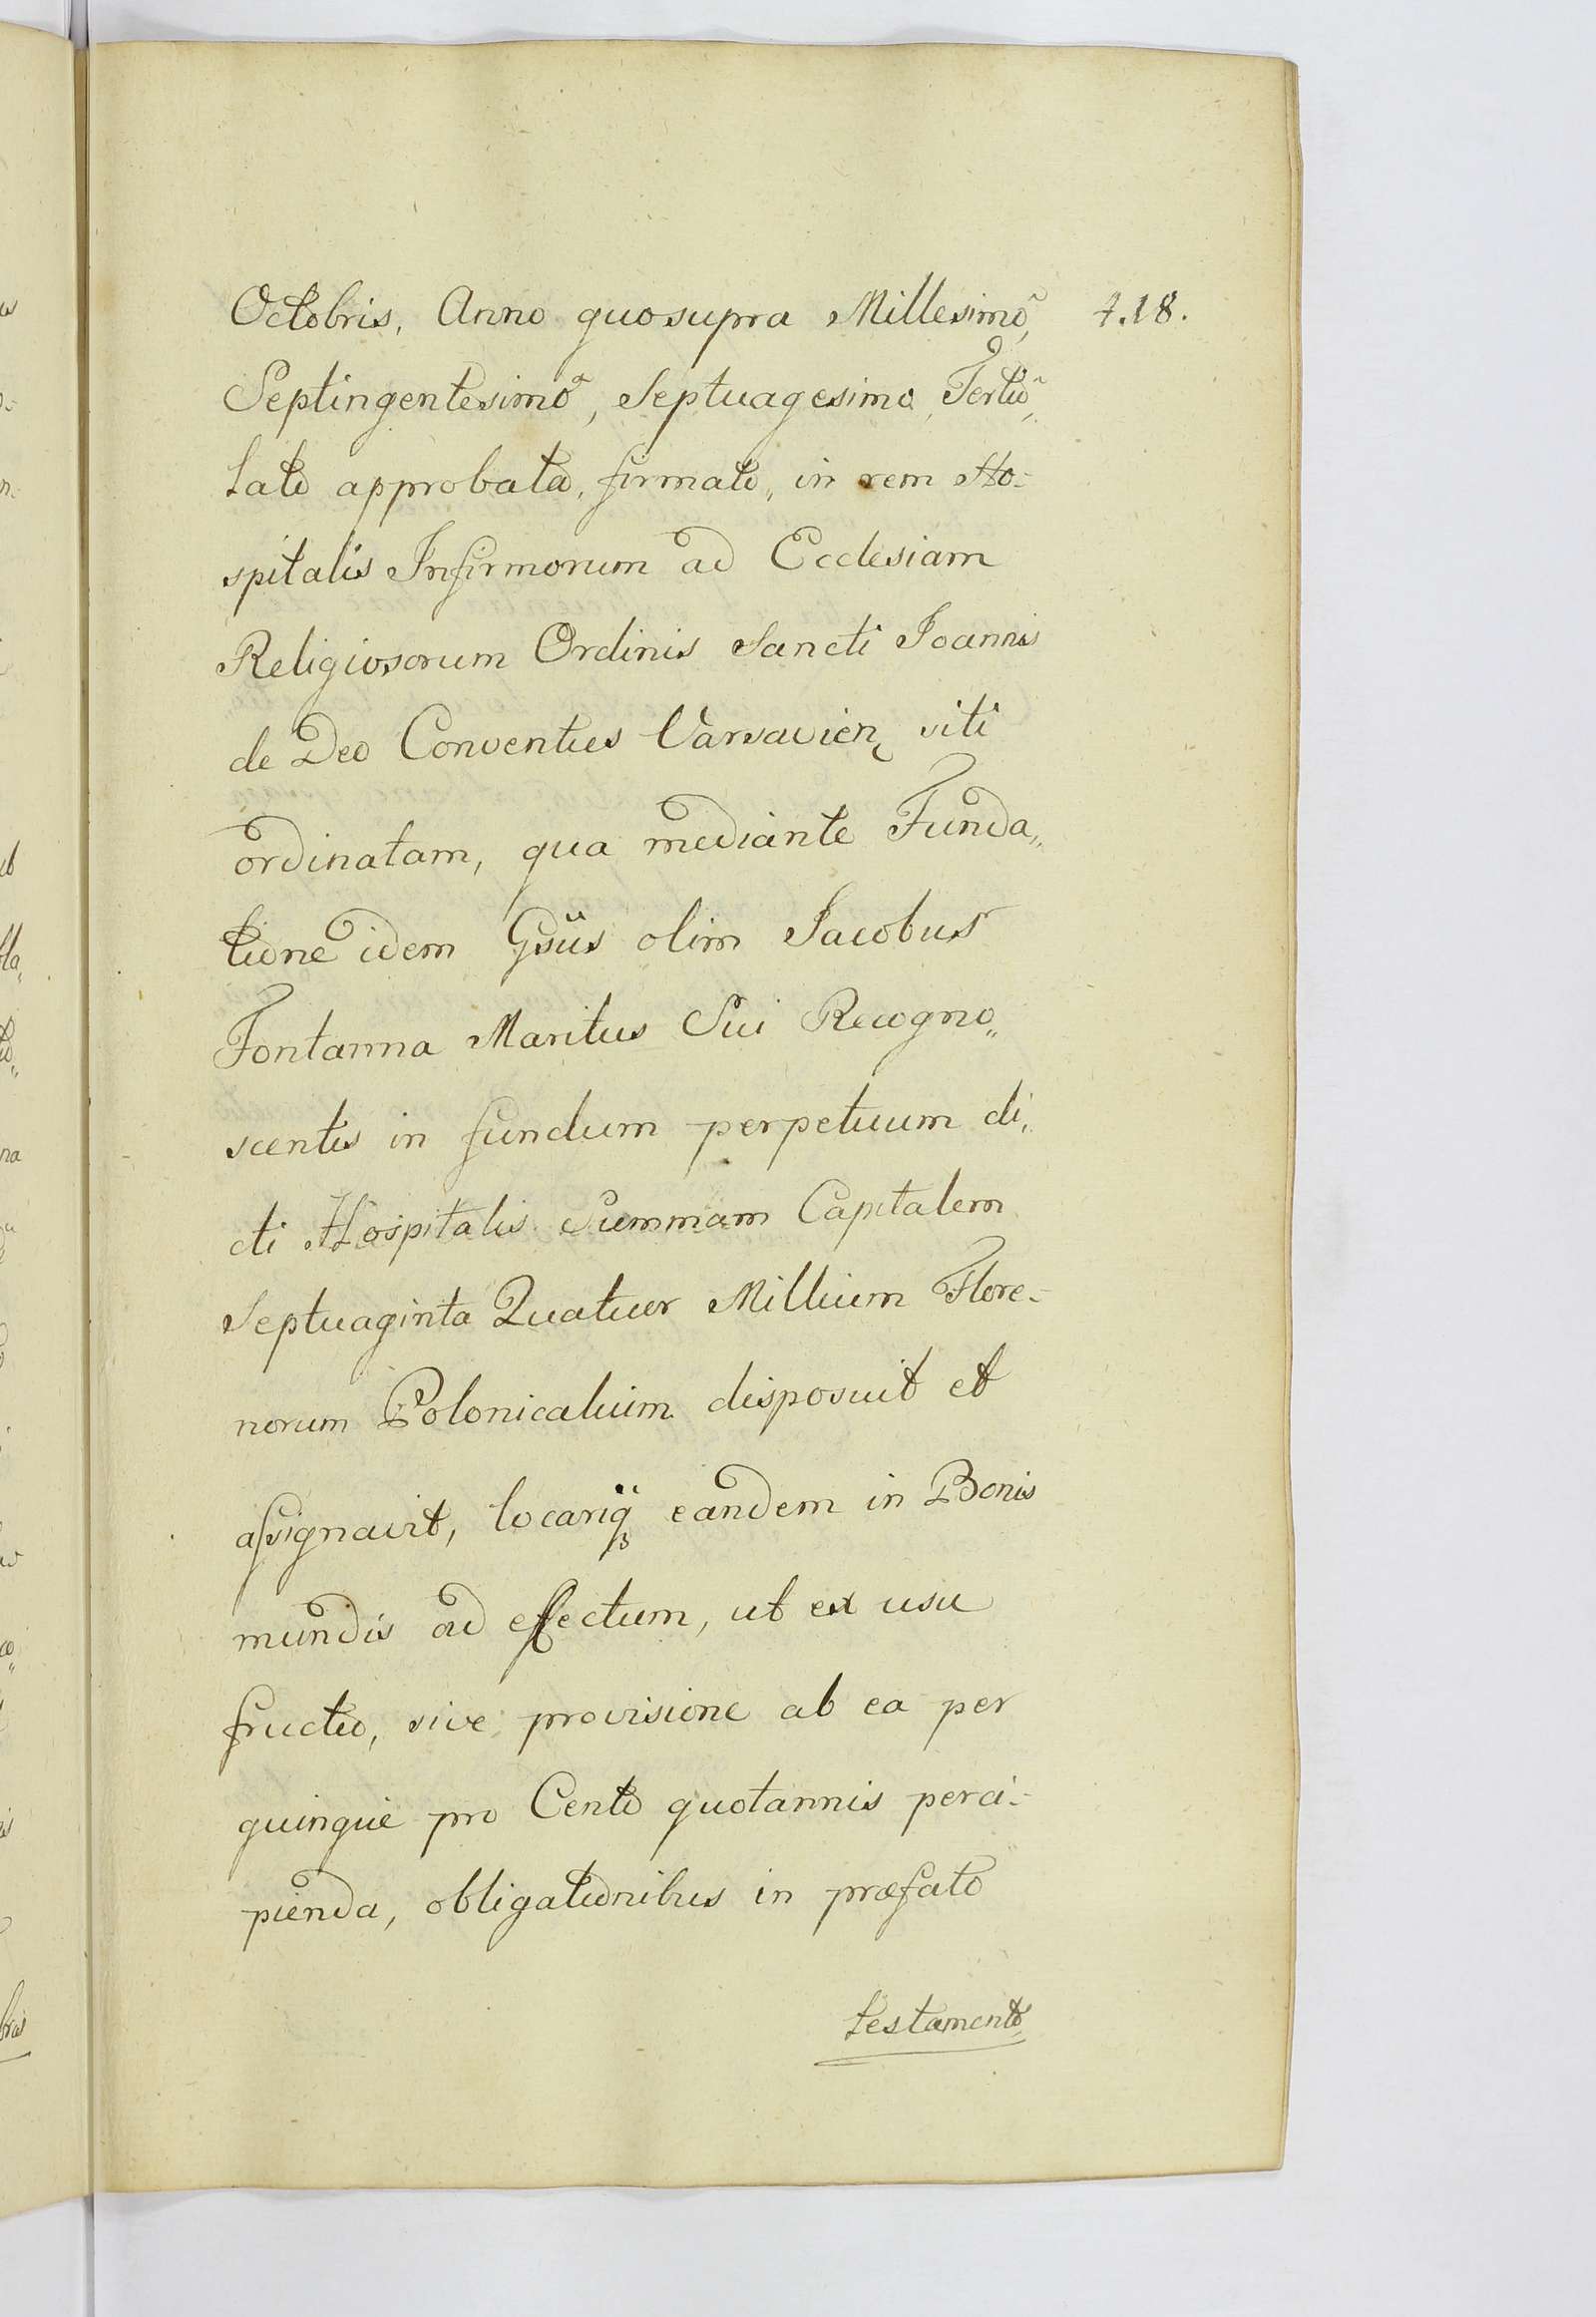 Octobris, Anno quo supra Millesimõ, 4.18.
Septingentesimõ, Septuagesimo Tertiõ,,
lato approbata, firmato, in rem Ho=
spitalis Infirmorum ad Ecclesiam
Religiosorum Ordinis Sancti Joannis
de Deo Conventus Varsavien siti
ordinatam, qua mediante Funda,,
tione idem Gsus olim Jacobus
Fontanna Maritus Sui Recogno,,
scentis in fundum perpetuum di,,
cti Hospitalis Summam Capitalem
Septuaginta Quatuor Millium Flore=
norum Polonicalium disposuit et
assignavit, locariq eandem in Bonis
mundis ad effectum, ut ex usu
fructu, sive provisione ab ea per
quinque pro Cento quotannis perci=
pienda, obligationibus in præfato
testamento